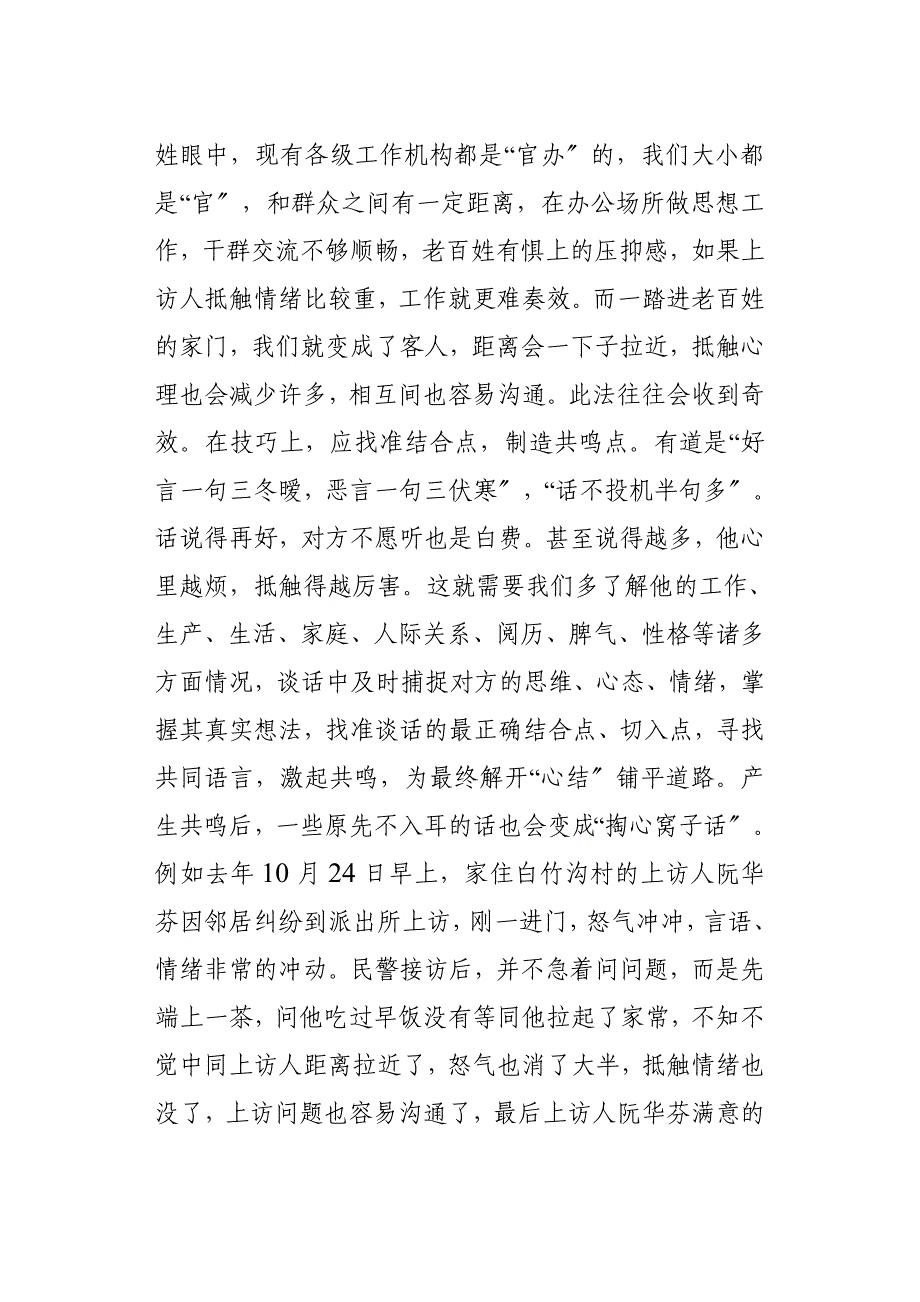 姓眼中，现有各级工作机构都是“官办〞的，我们大小都
是“官〞，和群众之间有一定距离，在办公场所做思想工
作，干群交流不够顺畅，老百姓有惧上的压抑感，如果上
访人抵触情绪比较重，工作就更难奏效。而一踏进老百姓
的家门，我们就变成了客人，距离会一下子拉近，抵触心
理也会减少许多，相互间也容易沟通。此法往往会收到奇
效。在技巧上，应找准结合点，制造共鸣点。有道是“好
言一句三冬暖，恶言一句三伏寒〞，“话不投机半句多〞。
话说得再好，对方不愿听也是白费。甚至说得越多，他心
里越烦，抵触得越厉害。这就需要我们多了解他的工作、
生产、生活、家庭、人际关系、阅历、脾气、性格等诸多
方面情况，谈话中及时捕捉对方的思维、心态、情绪，掌
握其真实想法，找准谈话的最正确结合点、切入点，寻找
共同语言，激起共鸣，为最终解开“心结〞铺平道路。产
生共鸣后，一些原先不入耳的话也会变成“掏心窝子话〞。
例如去年 10 月 24 日早上，家住白竹沟村的上访人阮华
芬因邻居纠纷到派出所上访，刚一进门，怒气冲冲，言语、
情绪非常的冲动。民警接访后，并不急着问问题，而是先
端上一茶，问他吃过早饭没有等同他拉起了家常，不知不
觉中同上访人距离拉近了，怒气也消了大半，抵触情绪也
没了，上访问题也容易沟通了，最后上访人阮华芬满意的